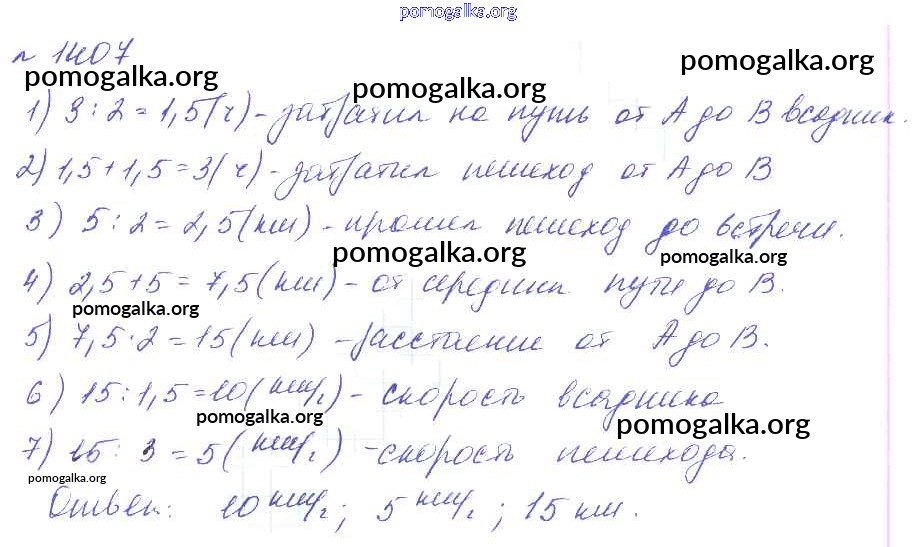 pomogalka.org
№ 1407
pomogalka.org
pomogalka.org
pomogalka.org
1) 3 : 2 = 1,5 (ч) - затратил на путь от А до В всадник.
2) 1,5 + 1,5 = 3 (ч) - затратил пешеход от А до В
3) 5 : 2 = 2,5 (км) - прошел пешеход до встречи.
pomogalka.org
pomogalka.org
4) 2,5 + 5 = 7,5 (км) - от середины пути до В.
pomogalka.org
5) 7,5 · 2 = 15 (км) - расстояние от А до В.
6) 15 : 1,5 = 10 (км/ч) - скорость всадника
pomogalka.org
pomogalka.org
7) 15 : 3 = 5 (км/ч) - скорость пешехода.
pomogalka.org
Ответ: 10 км/ч ; 5 км/ч ; 15 км.